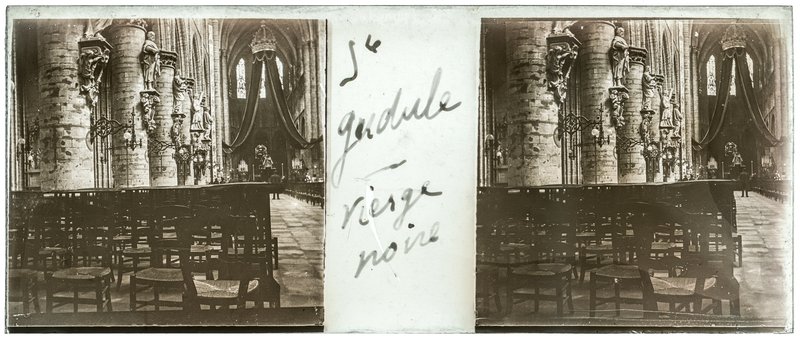 Ste
gudule
—
vierge
noire